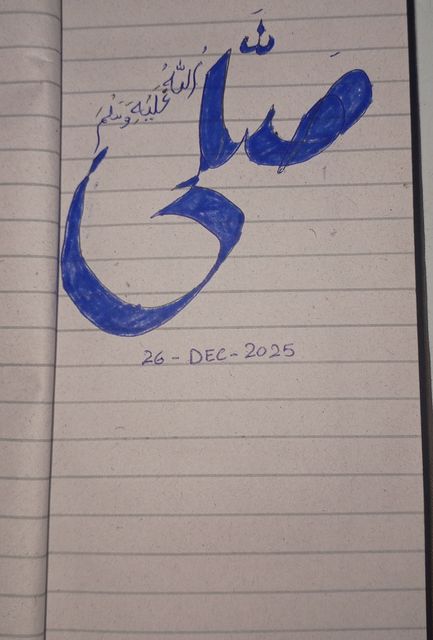 صَلَّى اللهُ عَلَيْهِ وَسَلَّمَ
26 - DEC - 2025